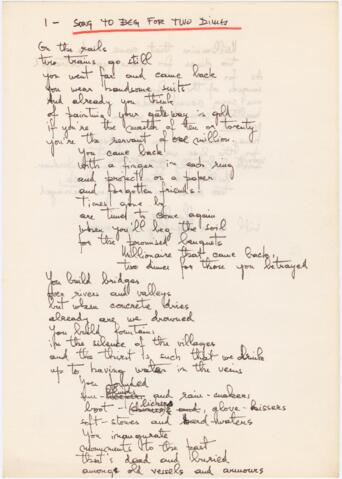 1 - SONG TO BEG FOR TWO DIMES
On the rails
two trains go still
you went far and came back
you wear handsome suits
And already you think
of painting your gateway in gold
if you're the master of ten or twenty
you're the servant of one million
You came back
with a finger in each ring
and projects on a paper
and forgotten friends!
Times gone by
are times to come again
when you'll beg the soil
for the promised banquets
Millionaire that came back,
two dimes for those you betrayed
You build bridges
for rivers and valleys
but when concrete dries
already are we drowned
You build fountains
in the silence of the villages
and the thirst is such that we drink
up to having water in the veins
You
sun- and rain-makers
boot-lickers, glove-kissers
soft-stones and hard-waters
You inaugurate
monuments to the past
that's dead and buried
among old vessels and armours